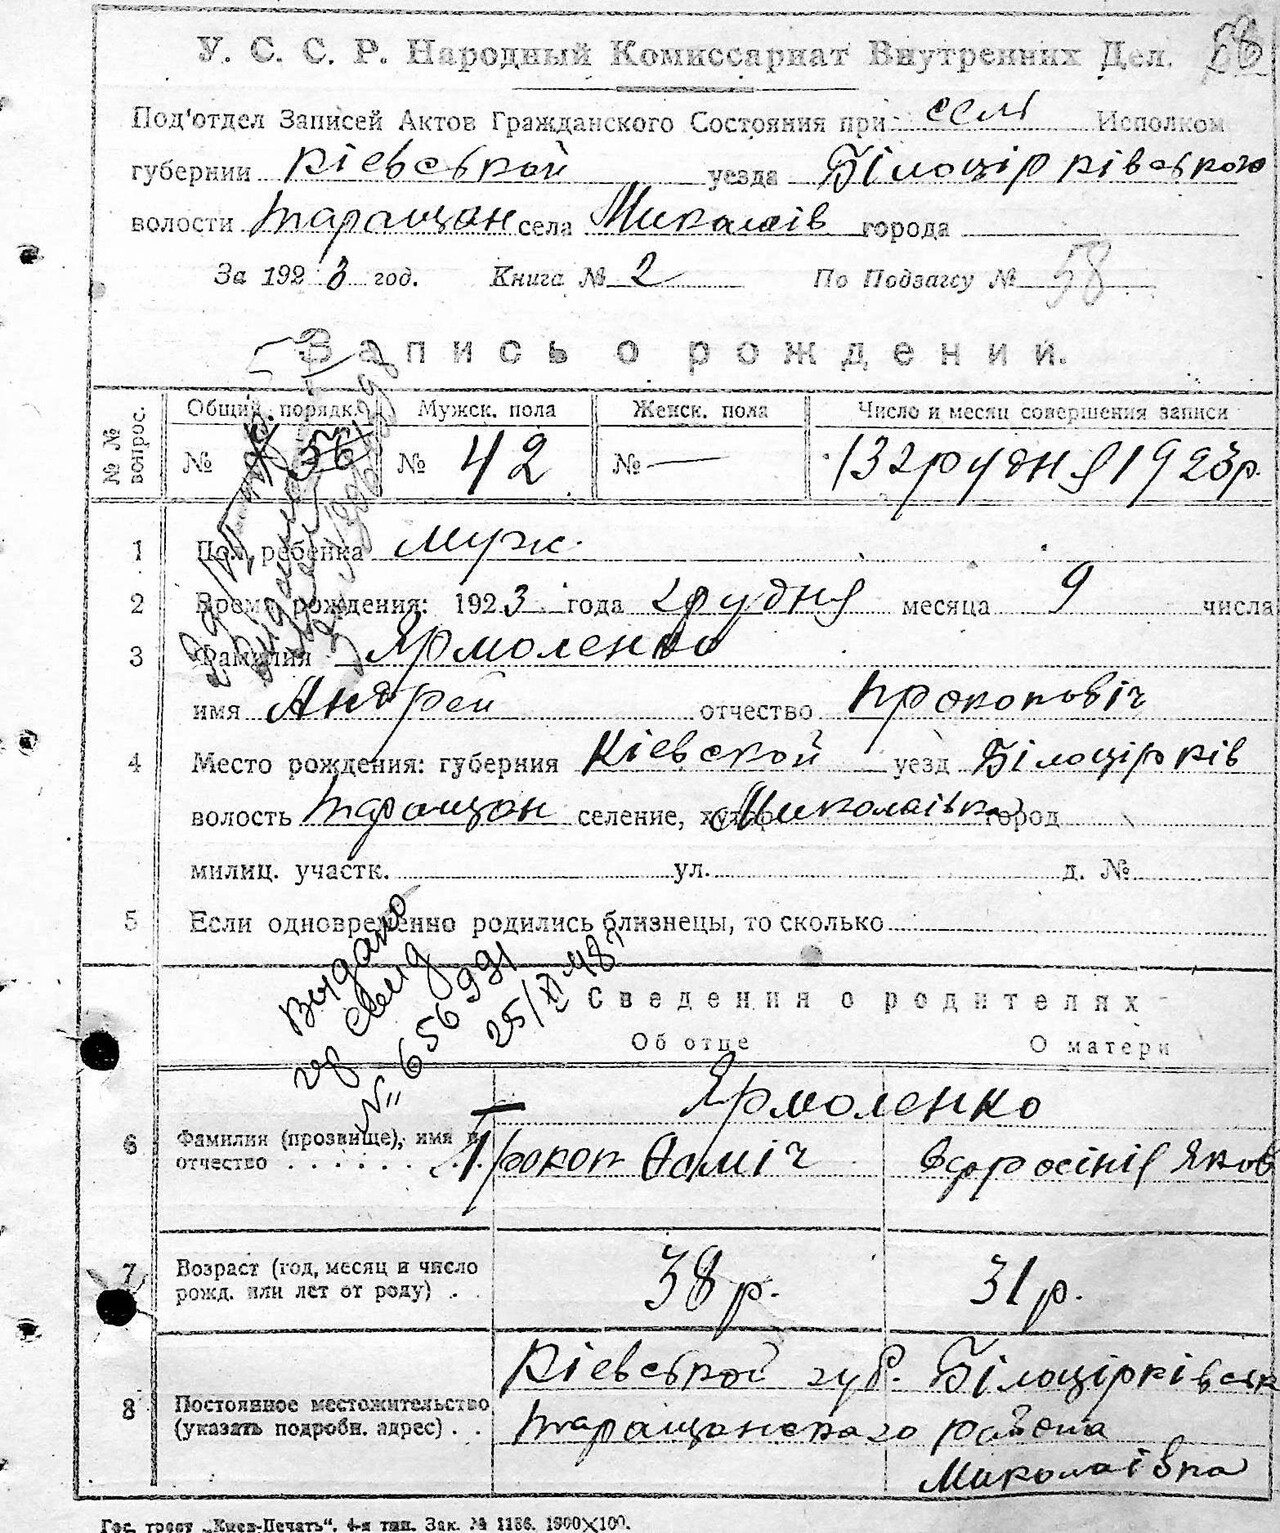 У. С. С. Р. Народный Комиссариат Внутренних Дел. 58
Под'отдел Записей Актов Гражданского Состояния при селі Исполком
губернии Кіевськой уезда Білоцірківського
волости Таращан села Миколаів города
За 1923 год. Книга № 2 По Подзагсу № 58
Запись о рождении.
№ № вопрос. Общий порядк. Мужск. пола Женск. пола Число и месяц совершения записи
№ 56 № 42 № — 13 грудня 1923 р.
1 Пол ребенка мужс.
2 Время рождения: 1923 года грудня месяца 9 числа
3 Фамилия Ярмоленко
имя Андрей отчество Прокопович
4 Место рождения: губерния Кіевской уезд Білоцірків
волость Таращан селение, хутор Миколаівка город
милиц. участк. ул. д. №
5 Если одновременно родились близнецы, то сколько
Выдано
свид
№ 656991
25/XI 48
Сведения о родителях
Об отце О матери
Ярмоленко
6 Фамилия (прозвище), имя и
отчество Прокоп Єфросінія Яков
7 Возраст (год, месяц и число
рожд. или лет от роду) 38 р. 31 р.
Кіевськой губ. Білоцірківськ
8 Постоянное местожительство
(указать подробн. адрес) Таращанского района
Миколаівка
Гос. трест „Киев-Печать“. 4-я тип. Зак. № 1186. 1900×100.